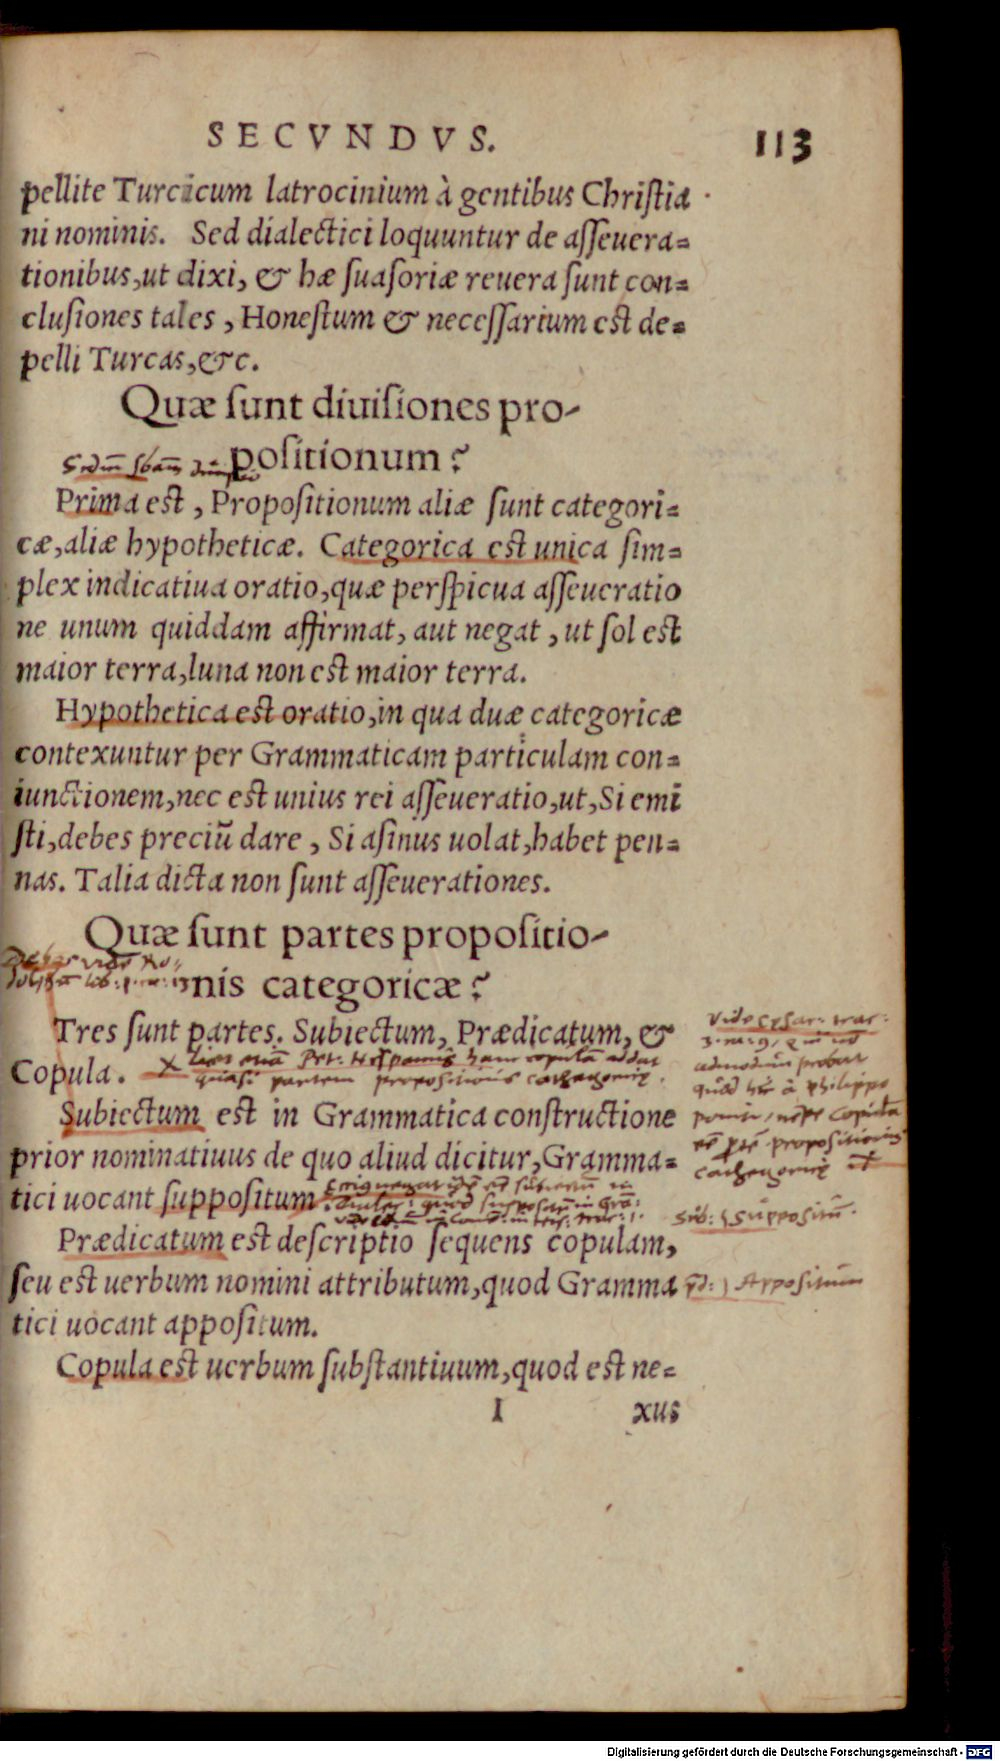 SECVNDVS. 113
pellite Turcicum latrocinium à gentibus Chriſtia
ni nominis. Sed dialectici loquuntur de aſſeuera=
tionibus, ut dixi, & hæ ſuaſoriæ reuera ſunt con=
cluſiones tales, Honeſtum & neceſſarium est de=
pelli Turcas, &c.
Quæ ſunt diuiſiones pro-
poſitionum?
Prima est, Propoſitionum aliæ ſunt categori=
cæ, aliæ hypotheticæ. Categorica est unica ſim=
plex indicatiua oratio, quæ perſpicua aſſeueratio
ne unum quiddam affirmat, aut negat, ut ſol est
maior terra, luna non est maior terra.
Hypothetica est oratio, in qua duæ categoricæ
contexuntur per Grammaticam particulam con=
iunctionem, nec est unius rei aſſeueratio, ut, Si emi
ſti, debes preciũ dare, Si aſinus uolat, habet pen=
nas. Talia dicta non ſunt aſſeuerationes.
Quæ ſunt partes propoſitio-
nis categoricæ?
Tres ſunt partes. Subiectum, Prædicatum, &
Copula.
quasi partem propositionis
Subiectum est in Grammatica conſtructione
prior nominatiuus de quo aliud dicitur, Gramma=
tici uocant ſuppoſitum.
Prædicatum est deſcriptio ſequens copulam,
ſeu est uerbum nomini attributum, quod Gramma
tici uocant appoſitum.
Appositum
Copula est uerbum ſubſtantiuum, quod est ne=
I xus
Digitalisierung gefördert durch die Deutsche Forschungsgemeinschaft - DFG